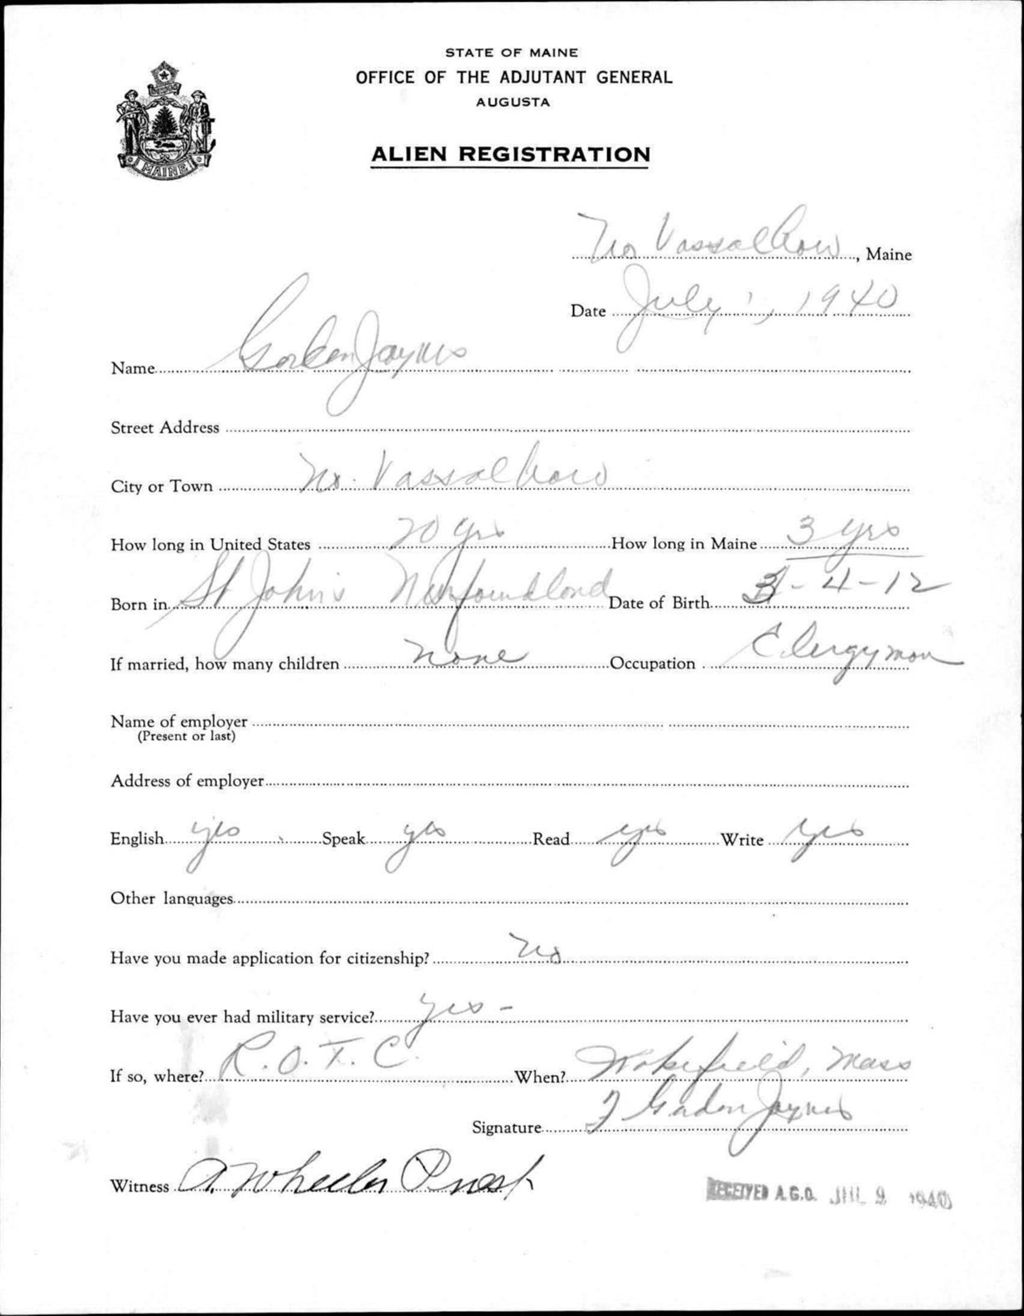 STATE OF MAINE
OFFICE OF THE ADJUTANT GENERAL
AUGUSTA
ALIEN REGISTRATION
MAINE
No Vassalboro, Maine
Date July 1, 1940
Name Gordon Jaynes
Street Address
City or Town No. Vassalboro
How long in United States 20 yrs How long in Maine 3 yrs
Born in St John's Newfoundland Date of Birth 3-4-12
If married, how many children none Occupation Clergyman
Name of employer
(Present or last)
Address of employer
English yes Speak yes Read yes Write yes
Other languages
Have you made application for citizenship? No
Have you ever had military service? yes -
If so, where? R.O.T.C. When? Wakefield, Mass
Signature F Gordon Jaynes
Witness A. Wheeler
RECEIVED A.G.O. JUL 9 1940